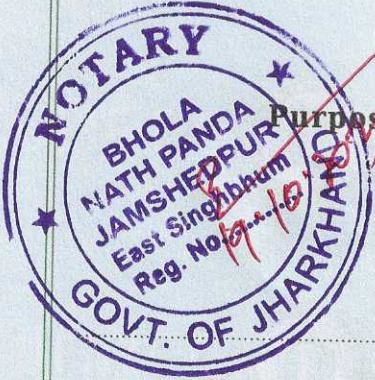 NOTARY
BHOLA
NATH PANDA
JAMSHEDPUR
East Singhbhum
Reg. No..........
GOVT. OF JHARKHAND
Purpos